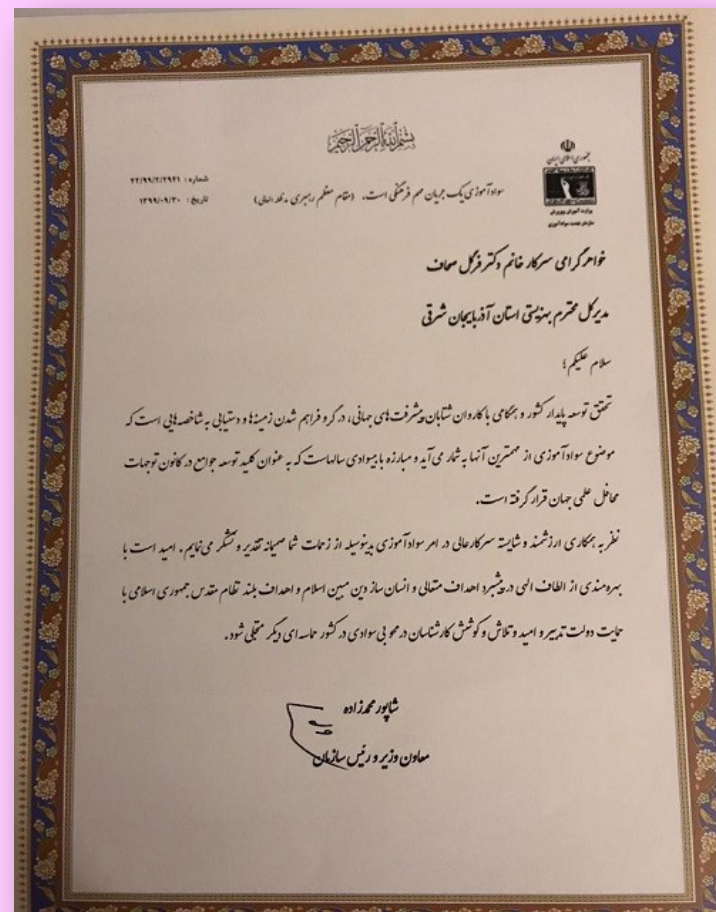 بسم الله الرحمن الرحیم
جمهوری اسلامی ایران
وزارت آموزش و پرورش
سازمان نهضت سوادآموزی
شماره: ۴۲/۹۹/۲/۲۹۲۱
تاریخ: ۱۳۹۹/۰۹/۳۰
سوادآموزی یک جریان مهم فرهنگی است. (مقام معظم رهبری مدظله العالی)
خواهر گرامی سرکار خانم دکتر فرگل صحاف
مدیرکل محترم بهزیستی استان آذربایجان شرقی
سلام علیکم؛
تحقق توسعه پایدار کشور و همگامی با کاروان شتابان پیشرفت‌های جهانی، در گرو فراهم شدن زمینه‌ها و دستیابی به شاخصه‌هایی است که
موضوع سوادآموزی از مهمترین آنها به شمار می‌آید و مبارزه با بیسوادی سالهاست که به عنوان کلید توسعه جوامع در کانون توجهات
محافل علمی جهان قرار گرفته است.
نظر به همکاری ارزشمند و شایسته سرکارعالی در امر سوادآموزی بدینوسیله از زحمات شما صمیمانه تقدیر و تشکر می‌نمایم. امید است با
بهره‌مندی از الطاف الهی در پیشبرد اهداف متعالی و انسان ساز دین مبین اسلام و اهداف بلند نظام مقدس جمهوری اسلامی با
حمایت دولت تدبیر و امید و تلاش و کوشش کارشناسان در محو بی‌سوادی در کشور حماسه ای دیگر متجلی شود.
شاپور محمدزاده
معاون وزیر و رئیس سازمان